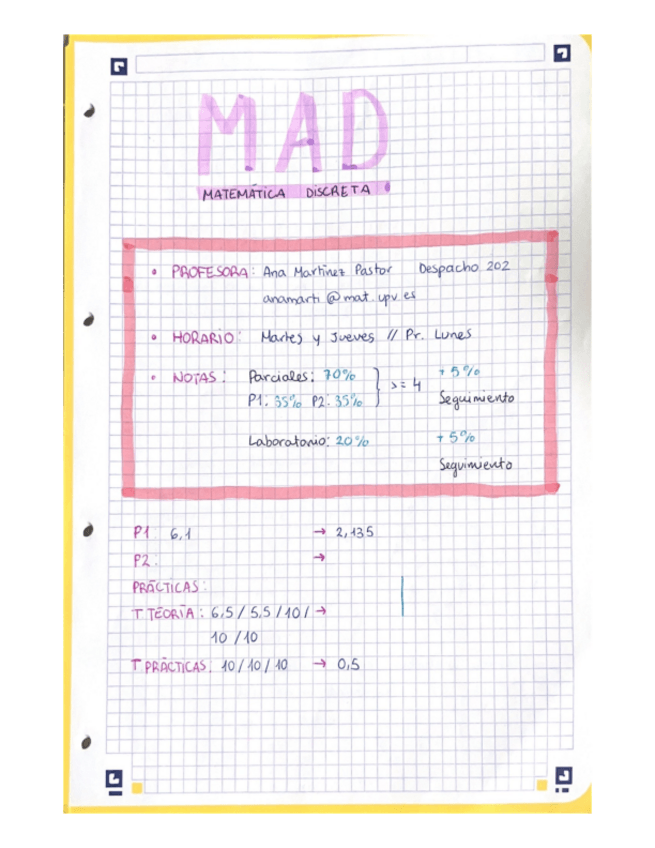 MAD
MATEMÁTICA DISCRETA
• PROFESORA: Ana Martínez Pastor Despacho 202
anamarti@mat.upv.es
• HORARIO: Martes y Jueves // Pr. Lunes
• NOTAS: Parciales: 70% } >= 4 + 5%
P1: 35% P2: 35% Seguimiento
Laboratorio: 20% + 5%
Seguimiento
P1: 6,1 → 2,135
P2: →
PRÁCTICAS:
T TEORÍA: 6,5 / 5,5 / 10 / →
10 / 10
T PRÁCTICAS: 10 / 10 / 10 → 0,5